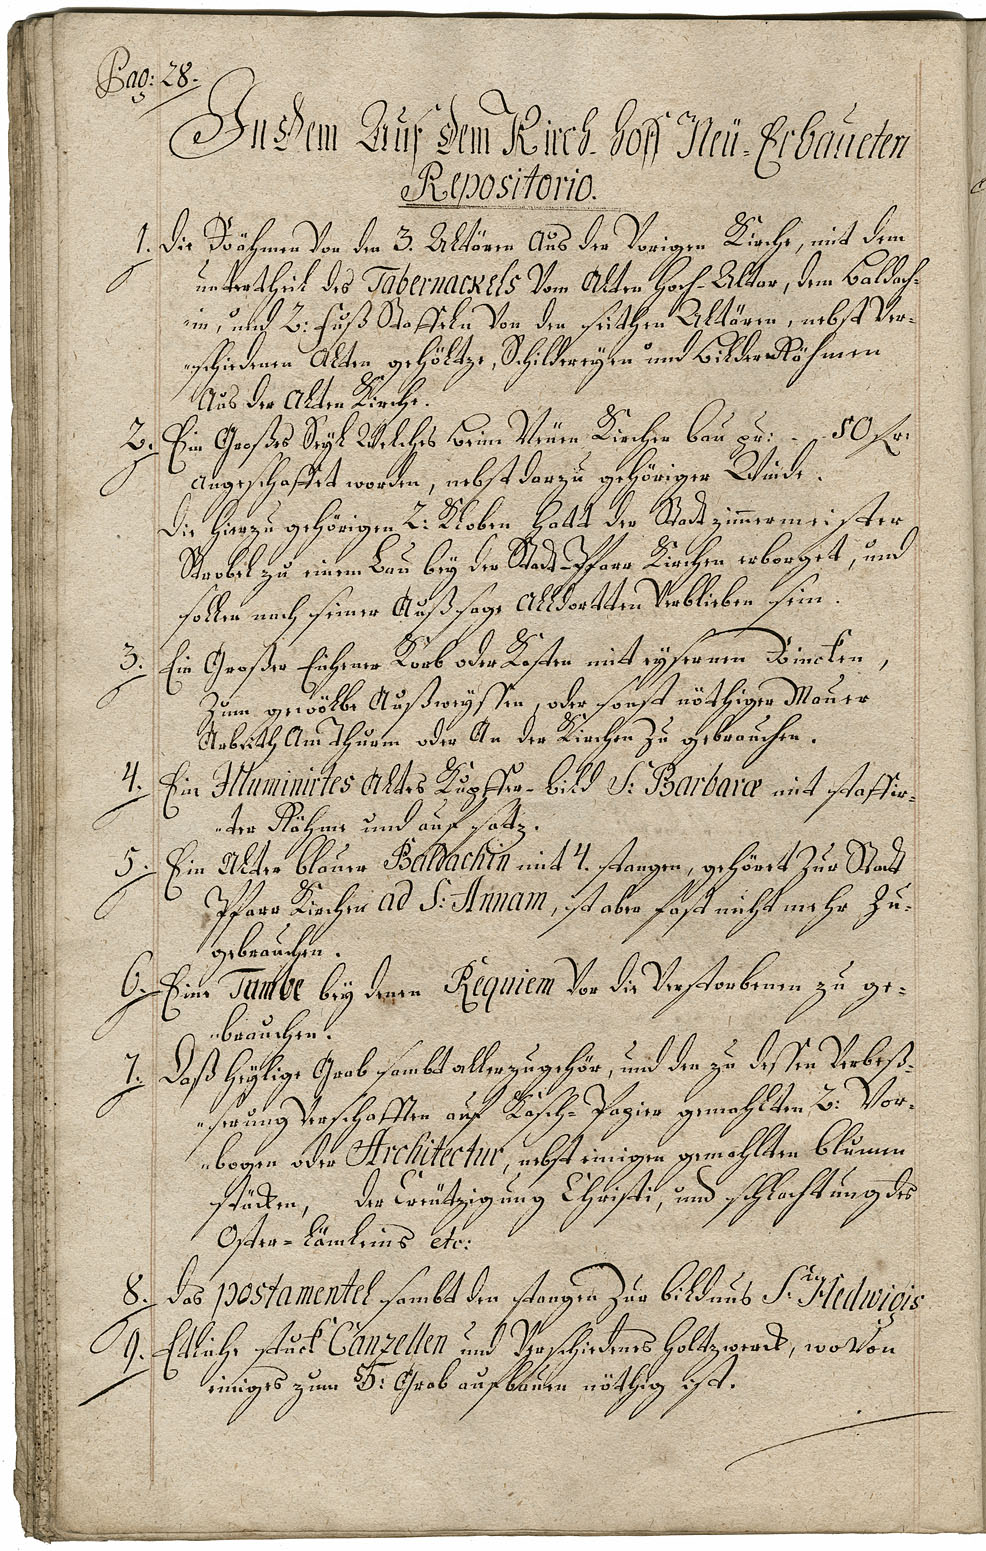 Pag: 28.
In dem Auf dem Kirch-hoff Neü-Erbaueten
Repositorio.
1. Die Rähmen Von den 3. Altären Aus der Vorigen Kirche, mit dem
untertheil des Tabernackels Vom Alten Hoch-Altar, dem Baldach-
-in, und 2: Fuß Staffeln Von den seithen Altären, nebst Ver-
-schiedenen Alten gehöltze, Schildereyen und bilder Rähmen
Aus der Alten Kirche.
2. Ein Großes Seyl Welches beim Neüen Kirchen bau pr: - - 50 Fr:
Angeschafft worden, nebst darzu gehöriger Winde.
Die hierzu gehörigen 2: Kloben hatt der Stadt zimmermeister
Strobel zu einem Bau bey der Stadt-Pfarr Kirchen erborget, und
sollen nach seiner Auß sage Alldortten Verblieben sein.
3. Ein Großer Eichener Korb oder Kasten mit eysernen Rincken,
Zum gewölbe Außweyssen, oder sonst nöthiger Mauer
Arbeith Am Thurm oder An der Kirchen Zu gebrauchen.
4. Ein Illuminirtes Altes Kupffer-bild S: Barbaræ mit staffir-
-ter Rähme und auf satz.
5. Ein Alter blauer Baldachin mit 4. stangen, gehöret Zur Stadt
Pfarr Kirchen ad S: Annam, ist aber fast nicht mehr Zu-
gebrauchen.
6. Eine Tumbe bey denen Requiem Vor die Verstorbenen zu ge-
-brauchen.
7. Daß heylige Grab sambt aller zugehör, und den zu dessen Verbeß-
-serung Verschafften auf Kasch-Papier gemahlten 2: Vor-
-bogen oder Architectur, nebst einigen gemahlten blumen
stöcken, der Creützigung Christi, und schlachtung des
Oster-Lämleins etc:
8. Das postamentel sambt den stangen Zur bildnus S: Hedwigis
9. Etliche stuck Canzellen und Verschiedenes holtzwerck, wo Von
einiges zum H: Grab aufbauen nöthig ist.